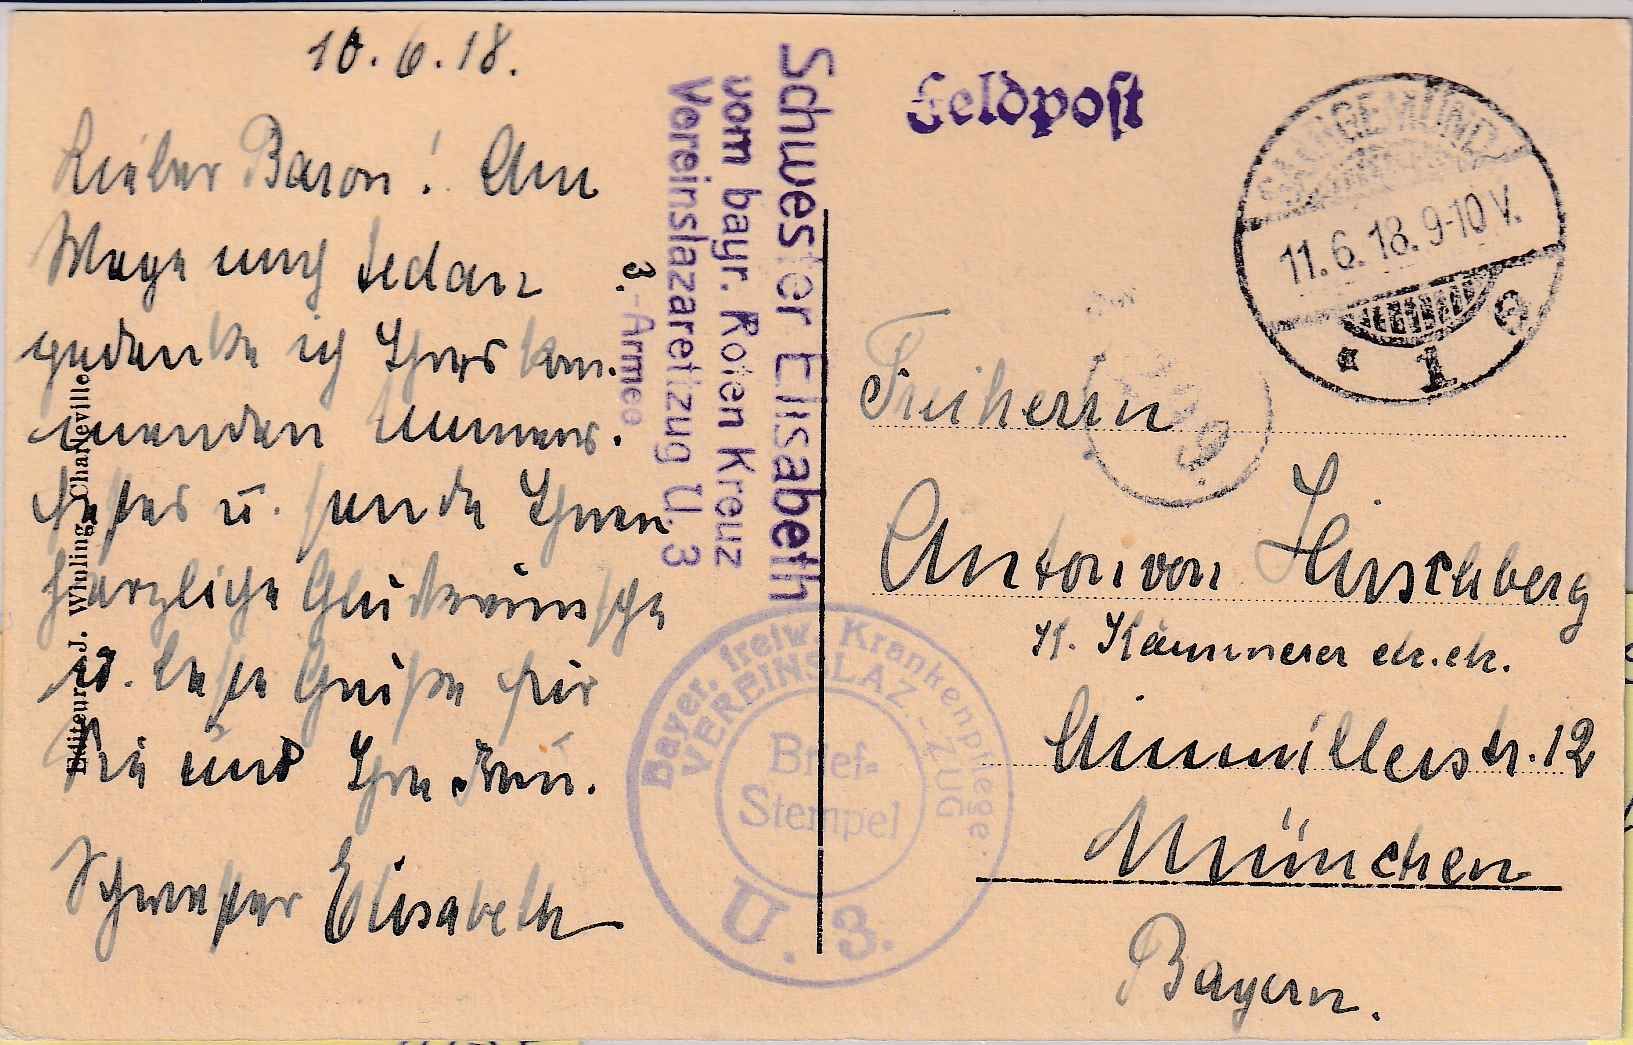 10.6.18.
Lieber Baron! Am
Wege nach Sedan
gedenke ich Ihres kom-
menden Namens-
festes u. sende Ihnen
herzliche Glückwünsche
u. beste Grüße für
Sie und Ihre Frau.
Schwester Elisabeth
Editeur: J. Winling, Charleville
Schwester Elisabeth
vom bayr. Roten Kreuz
Vereinslazarettzug U. 3
3.-Armee
Bayer. freiw. Krankenpflege.
VEREINSLAZ.-ZUG
Brief-
Stempel
U. 3.
Feldpost
SAARGEMÜND
11.6.18.9-10 V.
* 1
Freiherrn
Anton von Hirschberg
K. Kämmerer etc. etc.
Ainmillerstr. 12
München
Bayern.